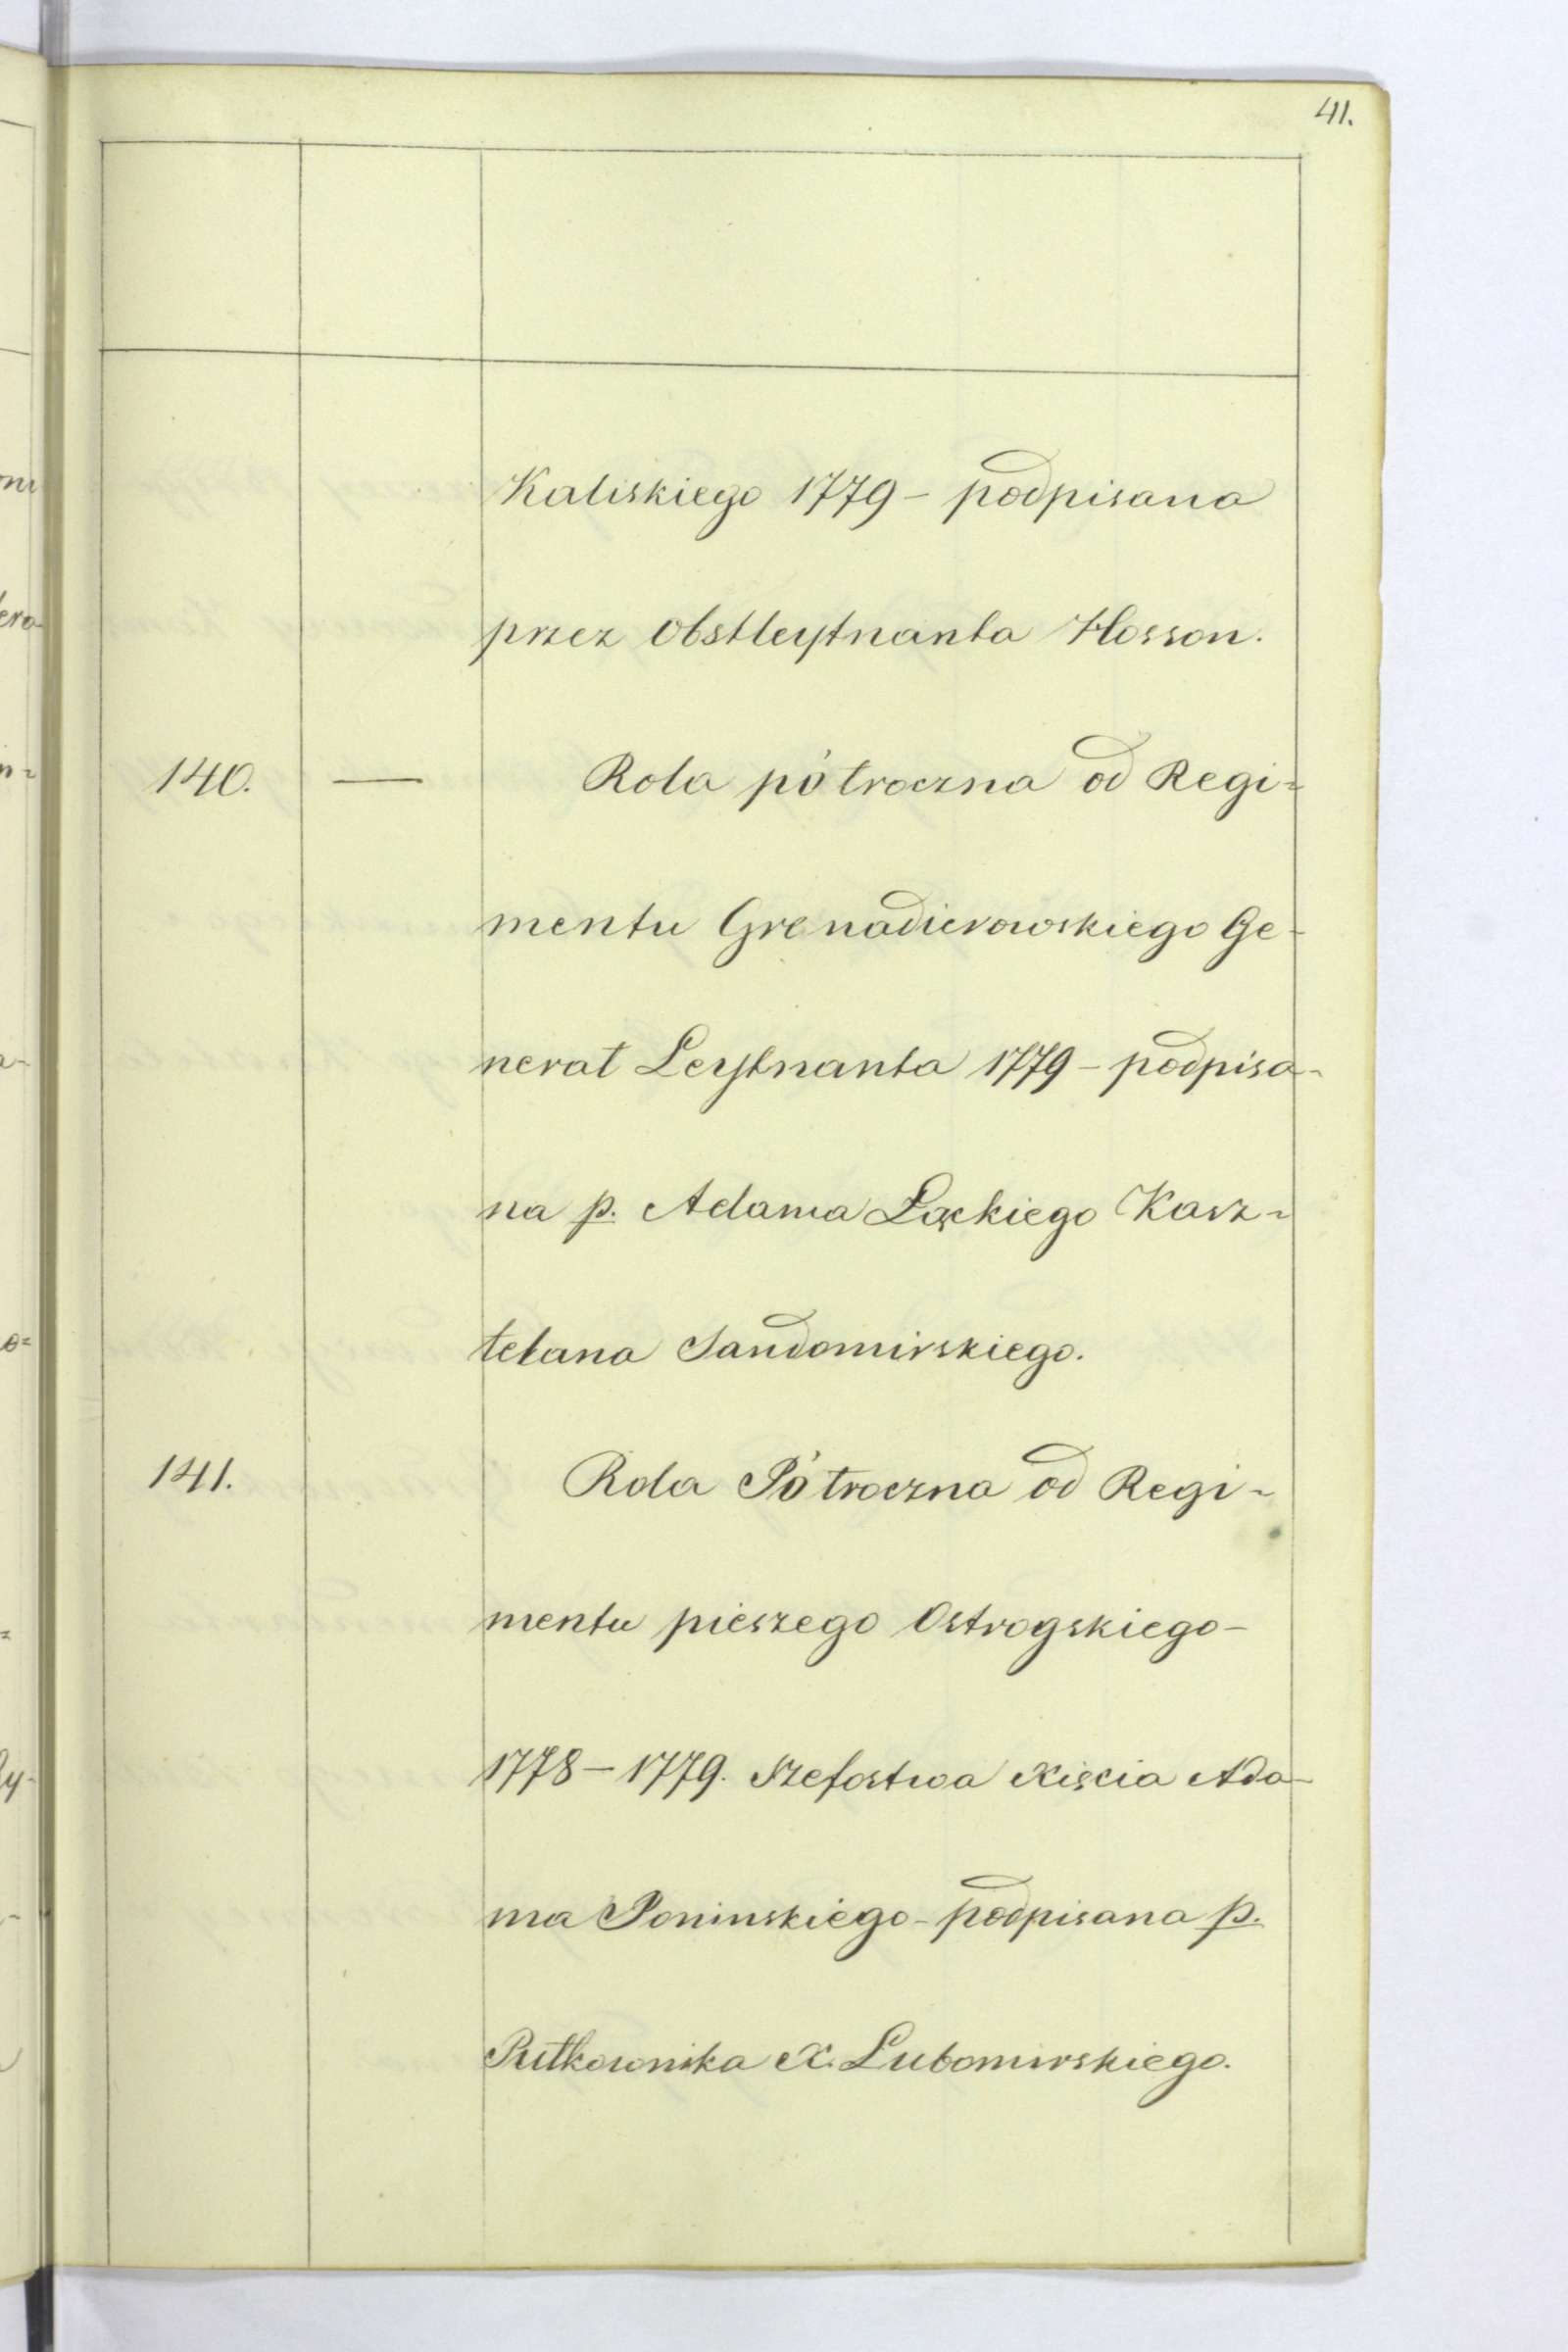 41.
Kaliskiego 1779 – podpisana
przez Obstleytnanta Hosson.
140. — Rola półroczna od Regi=
mentu Grenadierowskiego Ge-
nerał Leytnanta 1779 – podpisa-
na p. Adama Łąckiego Kasz=
telana Sandomirskiego.
141. Rola Półroczna od Regi-
mentu pieszego Ostrogskiego –
1778 – 1779. Szefostwa Xięcia Ada-
ma Poninskiego – podpisana p.
Pułkownika X. Lubomirskiego.